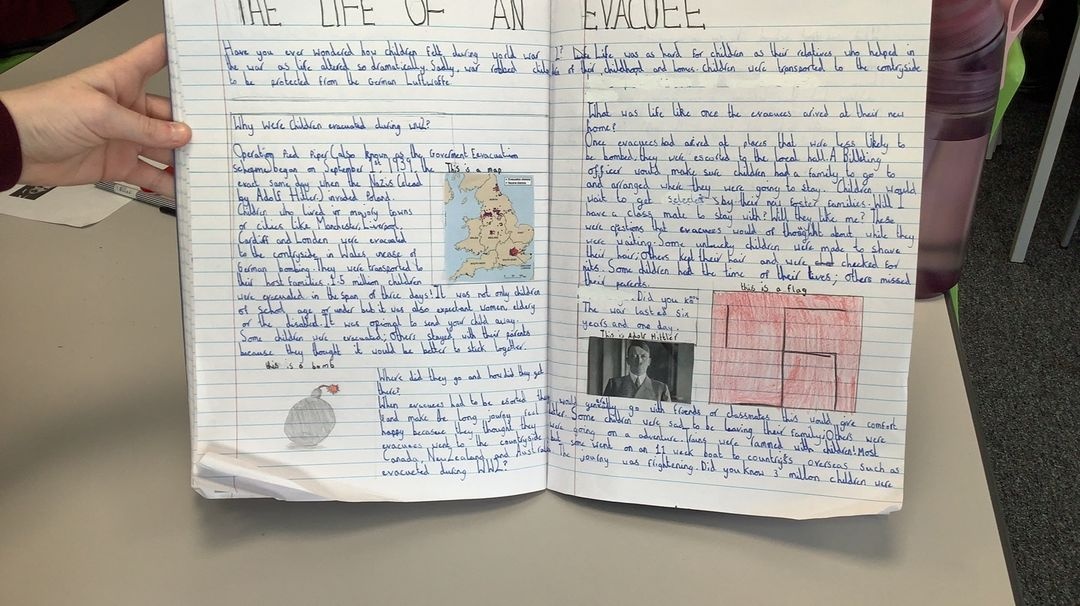 THE LIFE OF AN EVACUEE
Have you ever wondered how children felt during world war ? Life was as hard for children as their relatives who helped in
the war as life altered so dramatically. Sadly, war robbed of their childhood and homes. Children were transported to the contryside
to be protected from the German Luftwaffe
Why were children evacuated during WW2?
Operation Pied Piper (also known as the Goverment Evacuation
scheme) began on September 1st 1939, the
exact same day when the Nazis (lead
by Adolf Hitler) invaded Poland.
Children who lived in majory towns
or cities like Manchester, Liverpool,
Cardiff and London were evacuated
to the contryside in Wales incase of
German bombing. They were transported to
their host families. 1.5 million children
were evacuated in the span of three days! It was not only children
of school age or under but it was also expectant women, eldery
or the disabled. It was optional to send your child away.
Some children were evacuated; Others stayed with their parents
because they thought it would be better to stick together.
This is a map
this is a bomb
Where did they go and how did they get
there?
When evacuees had to be esorted they would generally go with friends or classmates this would give comfort
and make the long journy feel Some children were sad to be leaving their family; Others were
happy because they thought they were going on a adventure. Trains were rammed with children! Most
evacuees went to the countryside but some went on an 11 week boat to countrys overseas such as
Canada, New Zealand and Australia The journy was frightening. Did you know 3 million children were
evacuated during WW2?
What was life like once the evacuees arived at their new
home?
Once evacuees had arived at places that were less likely to
be bombed, they were escorted to the local hall. A Billiting
officer would make sure children had a family to go to
and arranged where they were going to stay. Children would
wait to get selected by their new foster families. Will I
have a class mate to stay with? Will they like me? These
were qestions that evacuees would of thought about while they
were waiting. Some unlucky children were made to shave
their hair; Others kept their hair and were checked for
nits. Some children had the time of their lives; others missed
their parents.
Did you know
The war lasted six
years and one day.
This is Adolf Hittler
this is a flag